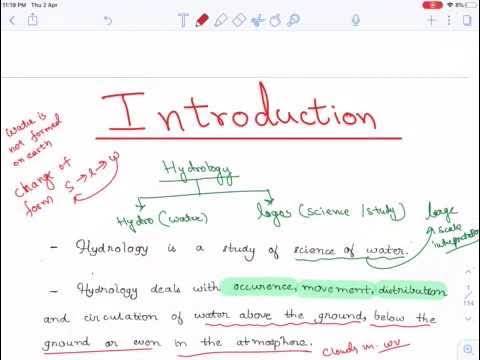 11:19 PM Thu 2 Apr
8%
Introduction
water is
not formed
on earth
Change of
form
S → l → w
Hydrology
Hydro (water)
logos (science / study)
large
scale
interpretation
- Hydrology is a study of science of water.
- Hydrology deals with occurence, movement, distribution
and circulation of water above the ground, below the
ground or even in the atmosphere.
clouds
1